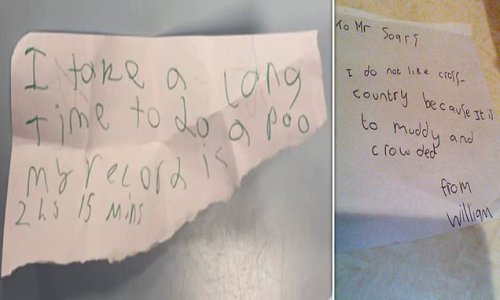 I take a long
time to do a poo
my record is
2 hs 15 mins
To Mr Soars
I do not like cross-
country because It is
to muddy and
crowded
from
William